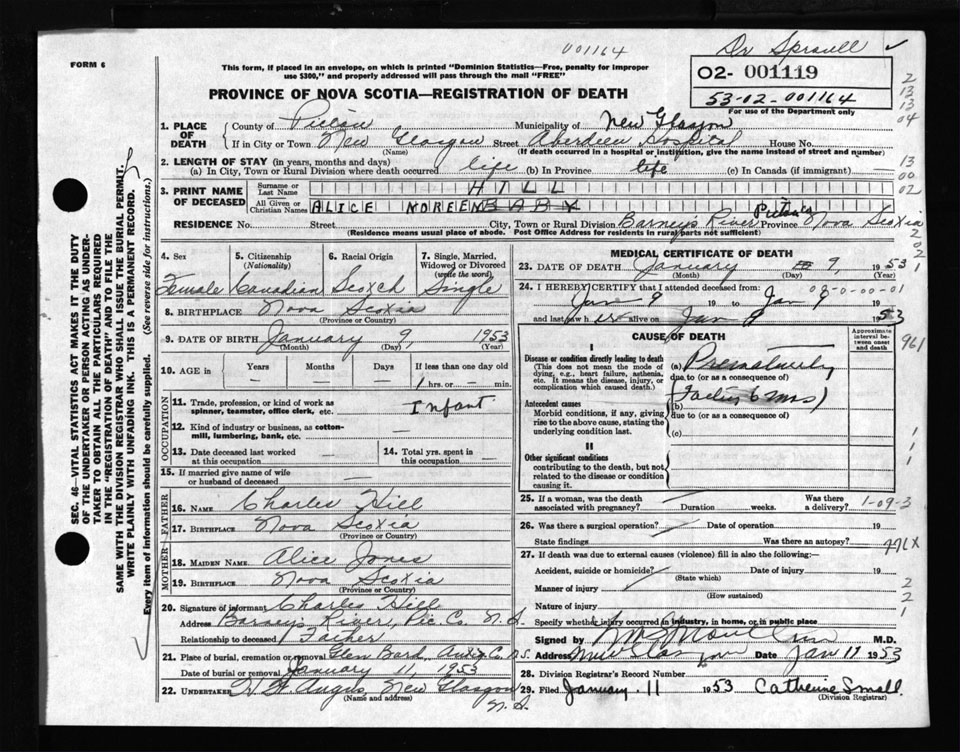 001164
Dr Sproull ✓
FORM 6
This form, if placed in an envelope, on which is printed "Dominion Statistics—Free, penalty for improper
use $300," and properly addressed will pass through the mail "FREE"
02- 001119
53-02-001164
For use of the Department only
PROVINCE OF NOVA SCOTIA—REGISTRATION OF DEATH
1. PLACE OF DEATH County of Pictou Municipality of New Glasgow
If in City or Town New Glasgow Street Aberdeen Hospital House No.
(Name) (If death occurred in a hospital or institution, give the name instead of street and number)
2. LENGTH OF STAY (in years, months and days)
(a) In City, Town or Rural Division where death occurred life (b) In Province life (c) In Canada (if immigrant) —
3. PRINT NAME OF DECEASED Surname or Last Name HILL
All Given or Christian Names ALICE NOREEN BABY
RESIDENCE No. Street City, Town or Rural Division Barney's River Pictou Co Province Nova Scotia
(Residence means usual place of abode. Post Office Address for residents in rural parts not sufficient)
4. Sex 5. Citizenship (Nationality) 6. Racial Origin 7. Single, Married, Widowed or Divorced (write the word)
Female Canadian Scotch Single
8. BIRTHPLACE Nova Scotia
(Province or Country)
9. DATE OF BIRTH January 9, 1953
(Month) (Day) (Year)
10. AGE IN Years Months Days If less than one day old
— — — 1 hrs. or — min.
OCCUPATION
11. Trade, profession, or kind of work as spinner, teamster, office clerk, etc. Infant
12. Kind of industry or business, as cotton-mill, lumbering, bank, etc. —
13. Date deceased last worked at this occupation —
14. Total yrs. spent in this occupation —
15. If married give name of wife or husband of deceased —
FATHER
16. NAME Charles Hill
17. BIRTHPLACE Nova Scotia
(Province or Country)
MOTHER
18. MAIDEN NAME Alice Jones
19. BIRTHPLACE Nova Scotia
(Province or Country)
20. Signature of informant Charles Hill
Address Barneys River, Pic. Co. N.S.
Relationship to deceased Father
21. Place of burial, cremation or removal Glen Bard, Antig Co. N.S.
Date of burial or removal January 11, 1953
22. UNDERTAKER Angus New Glasgow
(Name and address) N.S.
MEDICAL CERTIFICATE OF DEATH
23. DATE OF DEATH January 9, 1953
(Month) (Day) (Year)
24. I HEREBY CERTIFY that I attended deceased from:
Jan 9 19 to Jan 9
and last saw her alive on Jan 9 1953
CAUSE OF DEATH
Approximate interval between onset and death
I
Disease or condition directly leading to death
(This does not mean the mode of dying, e.g., heart failure, asthenia, etc. It means the disease, injury, or complication which caused death.)
(a) Prematurity
due to (or as a consequence of)
Antecedent causes
Morbid conditions, if any, giving rise to the above cause, stating the underlying condition last.
(b) 6 mos)
due to (or as a consequence of)
(c)
II
Other significant conditions
contributing to the death, but not related to the disease or condition causing it.
25. If a woman, was the death associated with pregnancy? Duration weeks. Was there a delivery?
26. Was there a surgical operation? Date of operation 19
State findings Was there an autopsy?
27. If death was due to external causes (violence) fill in also the following:—
Accident, suicide or homicide? Date of injury 19
(State which)
Manner of injury
(How sustained)
Nature of injury
Specify whether injury occurred in industry, in home, or in public place
Signed by M.D.
Address New Glasgow Date Jan 11 1953
28. Division Registrar's Record Number
29. Filed January 11 1953 Catherine Small.
(Division Registrar)
2
13
13
04
13
00
02
2
0
2
1
03-0-00-01
961
1
1
1
1-09-3
776X
2
2
1
SEC. 46—VITAL STATISTICS ACT MAKES IT THE DUTY
OF THE UNDERTAKER OR PERSON ACTING AS UNDER-
TAKER TO OBTAIN ALL THE PARTICULARS REQUIRED
IN THE "REGISTRATION OF DEATH" AND TO FILE THE
SAME WITH THE DIVISION REGISTRAR WHO SHALL ISSUE THE BURIAL PERMIT.
WRITE PLAINLY WITH UNFADING INK. THIS IS A PERMANENT RECORD.
Every item of information should be carefully supplied. (See reverse side for instructions.)